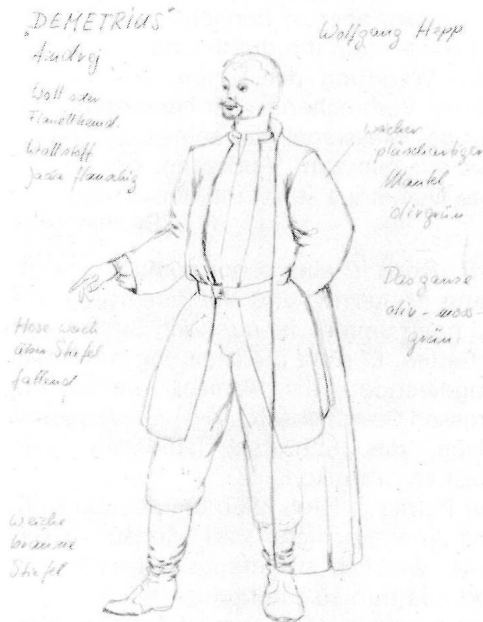 "DEMETRIUS"
Andrej
Wolfgang Hepp
Woll oder
Flanellhemd.
Wollstoff
Jacke flauschig
weicher
plüschartiger
Mantel
olivgrün
Das ganze
oliv-moos-
grün
Hose weich
über Stiefel
fallend
weiche
braune
Stiefel